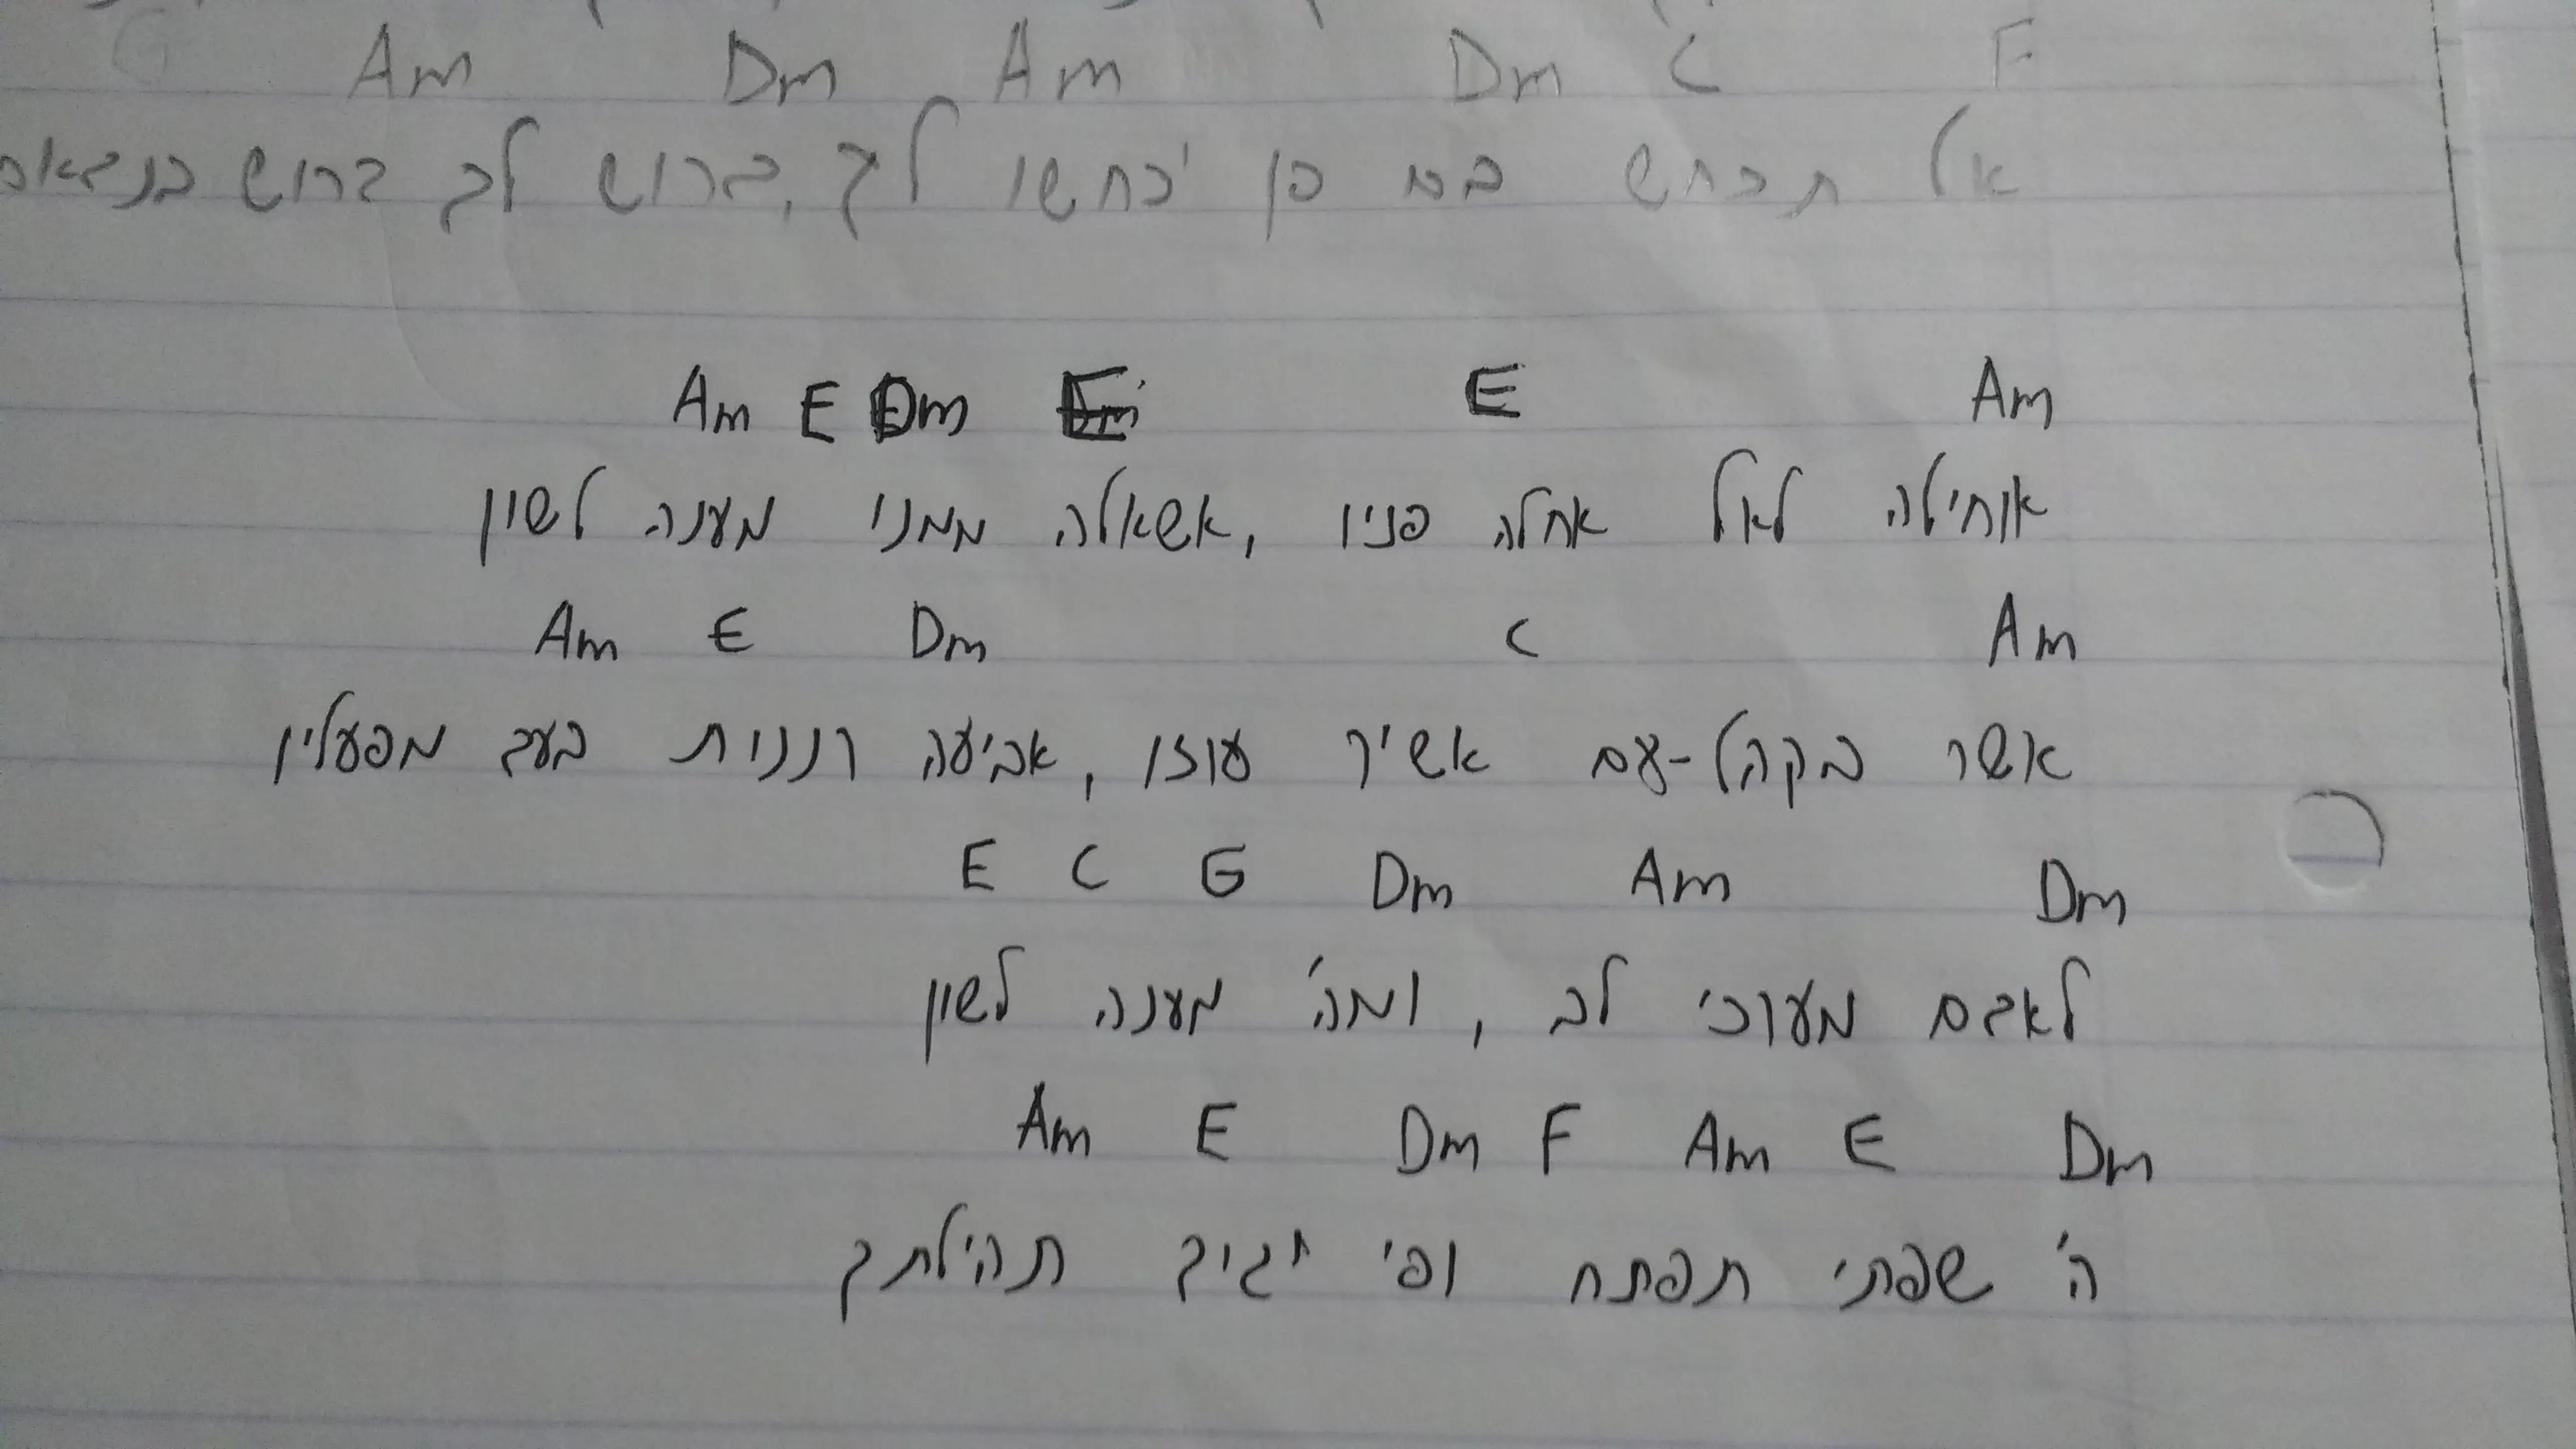 Am Dm Am Dm C F
אל תכחש בם פן יכחשו לך, דרוש לך דרוש
Am E Dm E Am
אוחילה לאל אחלה פניו, אשאלה ממנו מענה לשון
Am E Dm C Am
אשר בקהל-עם אשיר עוזו, אביעה רננות בעד מפעליו
E C G Dm Am Dm
לאדם מערכי לב, ומה' מענה לשון
Am E Dm F Am E Dm
ה' שפתי תפתח ופי יגיד תהילתך